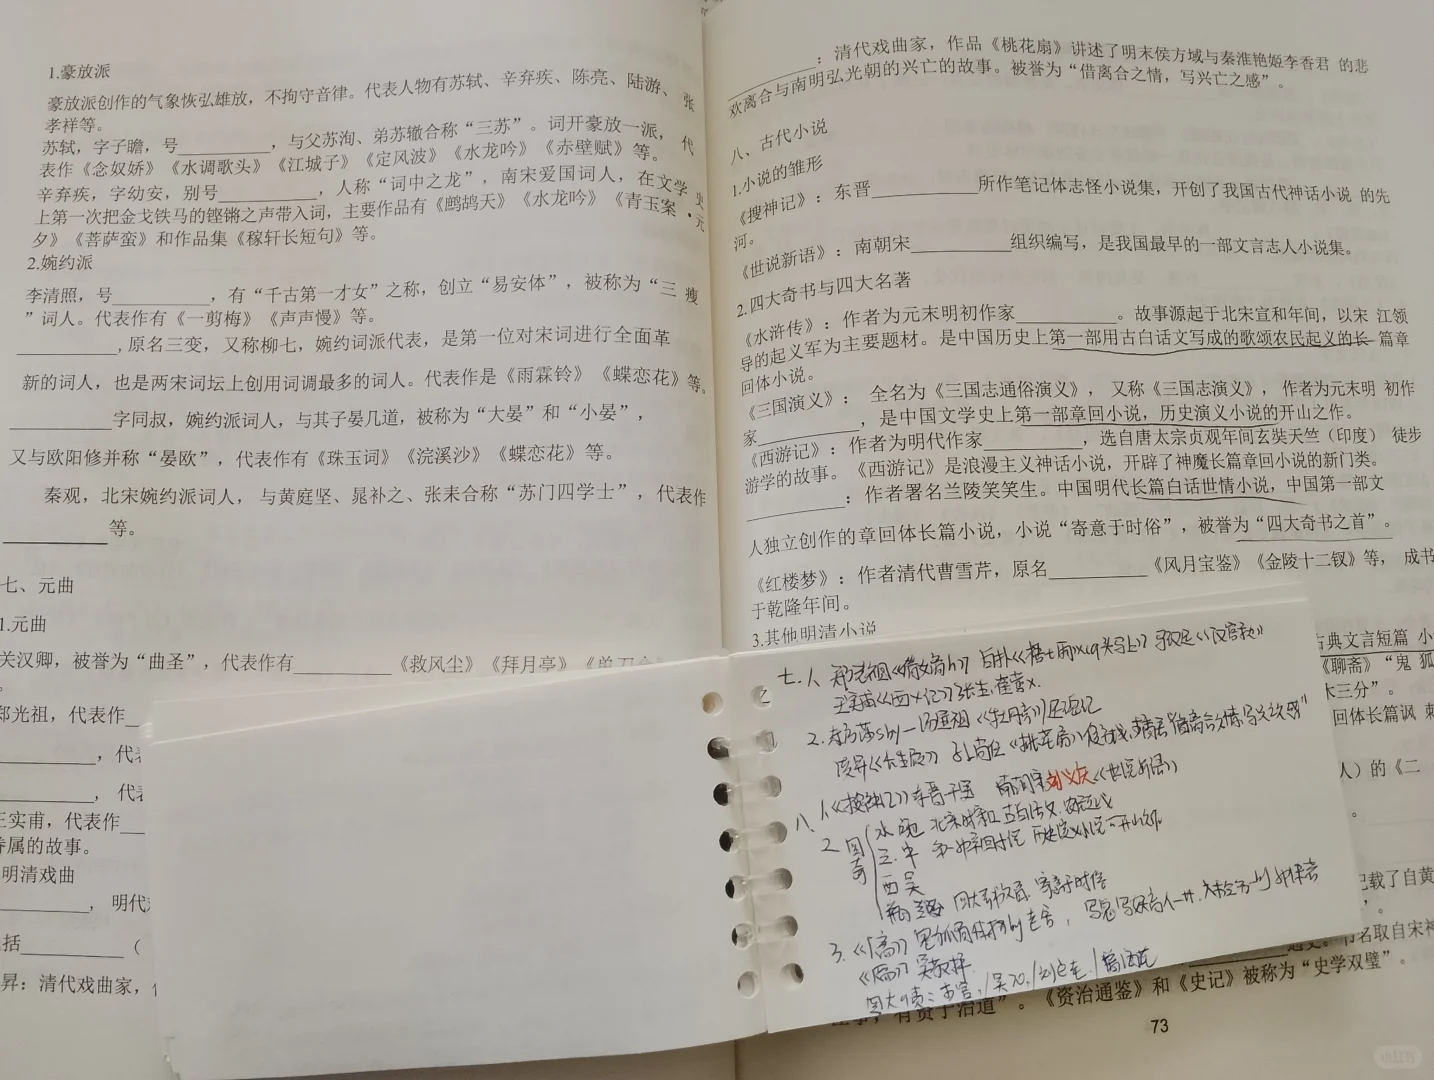 1.豪放派
豪放派创作的气象恢弘雄放，不拘守音律。代表人物有苏轼、辛弃疾、陈亮、陆游、张
孝祥等。
苏轼，字子瞻，号__________，与父苏洵、弟苏辙合称“三苏”。词开豪放一派，代
表作《念奴娇》《水调歌头》《江城子》《定风波》《水龙吟》《赤壁赋》等。
辛弃疾，字幼安，别号__________，人称“词中之龙”，南宋爱国词人，在文学史
上第一次把金戈铁马的铿锵之声带入词，主要作品有《鹧鸪天》《水龙吟》《青玉案·元
夕》《菩萨蛮》和作品集《稼轩长短句》等。
2.婉约派
李清照，号__________，有“千古第一才女”之称，创立“易安体”，被称为“三瘦
”词人。代表作有《一剪梅》《声声慢》等。
__________,原名三变，又称柳七，婉约词派代表，是第一位对宋词进行全面革
新的词人，也是两宋词坛上创用词调最多的词人。代表作是《雨霖铃》《蝶恋花》等。
__________字同叔，婉约派词人，与其子晏几道，被称为“大晏”和“小晏”，
又与欧阳修并称“晏欧”，代表作有《珠玉词》《浣溪沙》《蝶恋花》等。
秦观，北宋婉约派词人，与黄庭坚、晁补之、张耒合称“苏门四学士”，代表作
__________等。
七、元曲
1.元曲
关汉卿，被誉为“曲圣”，代表作有__________《救风尘》《拜月亭》
郑光祖，代表作
__________，代表
__________，代表
王实甫，代表作
眷属的故事。
明清戏曲
__________，明代
括__________（
昇：清代戏曲家，
__________：清代戏曲家，作品《桃花扇》讲述了明末侯方域与秦淮艳姬李香君的悲
欢离合与南明弘光朝的兴亡的故事。被誉为“借离合之情，写兴亡之感”。
八、古代小说
1.小说的雏形
《搜神记》：东晋__________所作笔记体志怪小说集，开创了我国古代神话小说的先
河。
《世说新语》：南朝宋__________组织编写，是我国最早的一部文言志人小说集。
2.四大奇书与四大名著
《水浒传》：作者为元末明初作家__________。故事源起于北宋宣和年间，以宋江领
导的起义军为主要题材。是中国历史上第一部用古白话文写成的歌颂农民起义的长篇章
回体小说。
《三国演义》：全名为《三国志通俗演义》，又称《三国志演义》，作者为元末明初作
家__________，是中国文学史上第一部章回小说，历史演义小说的开山之作。
《西游记》：作者为明代作家__________，选自唐太宗贞观年间玄奘天竺（印度）徒步
游学的故事。《西游记》是浪漫主义神话小说，开辟了神魔长篇章回小说的新门类。
__________：作者署名兰陵笑笑生。中国明代长篇白话世情小说，中国第一部文
人独立创作的章回体长篇小说，小说“寄意于时俗”，被誉为“四大奇书之首”。
《红楼梦》：作者清代曹雪芹，原名__________《风月宝鉴》《金陵十二钗》等，成书
于乾隆年间。
3.其他明清小说
古典文言短篇小
《聊斋》“鬼狐
木三分”。
回体长篇讽刺
人）的《二
。
记载了自黄
”。
书名取自宋神
有资于治道”。《资治通鉴》和《史记》被称为“史学双璧”。
73
七.1. 郑光祖《倩女离》 白朴《梧七雨》《墙头马上》 马致远《汉宫秋》
王实甫《西X记》张生,崔莺X.
2. 汤显祖《牡丹亭》还魂记
《长生殿》 孔尚任《桃花扇》
八、1.《搜神记》东晋干宝 南朝宋刘义庆《世说新语》
2. 四奇
水 施
三.
西 吴
3.
小红书